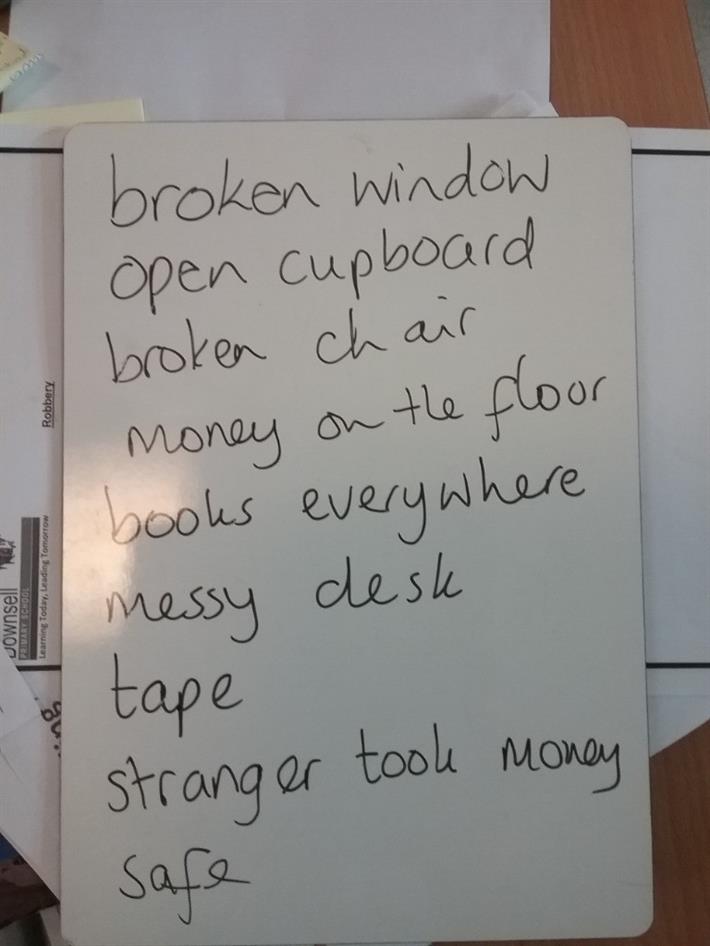 broken window
open cupboard
broken chair
money on the floor
books everywhere
messy desk
tape
stranger took money
safe
Robbery
Downsell
PRIMARY SCHOOL
Learning Today, Leading Tomorrow